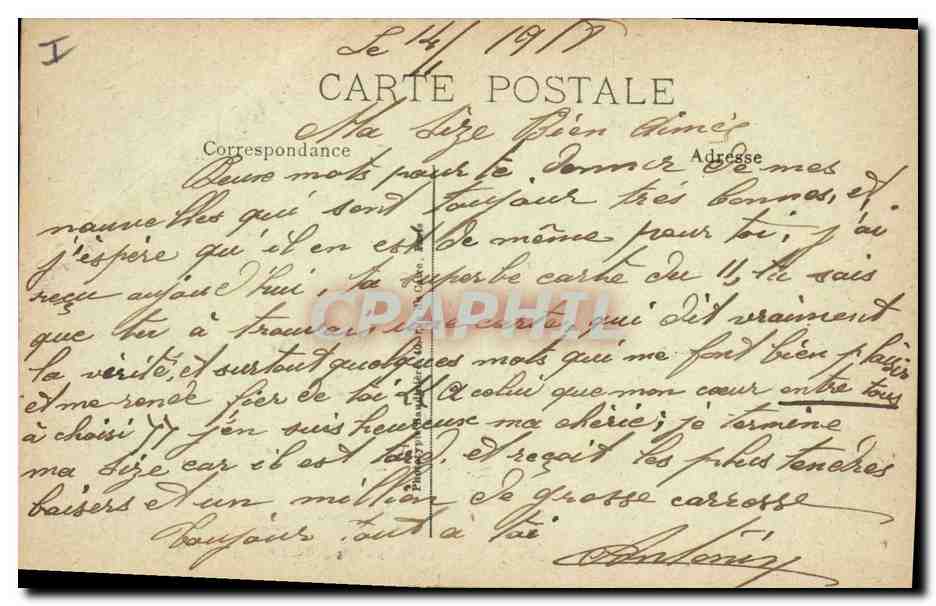 I
Le 14/11 191
CARTE POSTALE
Ma Size Bien Aimée
Correspondance
Adresse
Deux mots pour te donner de mes
nouvelles qui sont toujour très bonnes, et,
j'éspère qu'il en est de même pour toi; j'ai
reçu aujourd'hui, ta superbe carte du 11, tu sais
que tu à trouvais une carte, qui dit vraiment
la vérité, et surtout quelques mots qui me font bien plaisir
et me rende fier de toi " A celui que mon cœur entre tous
à choisi " j'en suis heureux ma chérie; je termine
ma Size car il est tard. et reçoit les plus tendres
baisers et un million de grosse carresse
Toujour tout à toi
Antonin
CPAPHIL